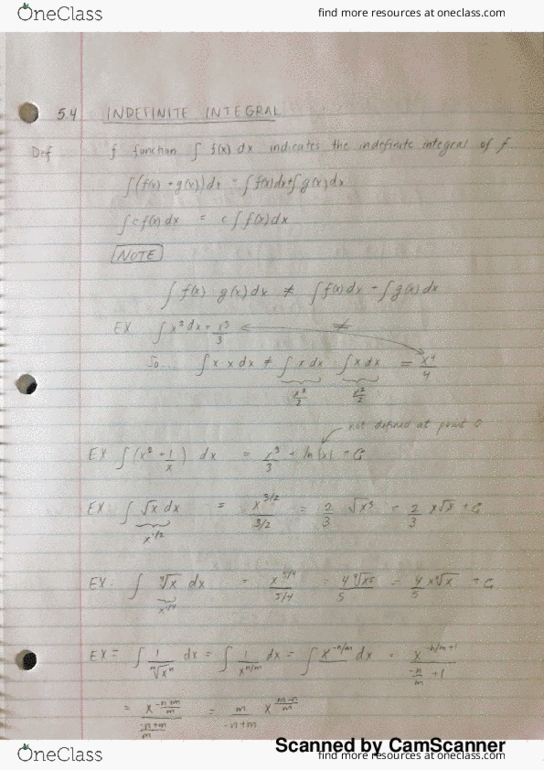 OneClass find more resources at oneclass.com
5.4 INDEFINITE INTEGRAL
Def f function ∫ f(x) dx indicates the indefinite integral of f
∫(f(x) + g(x))dx = ∫f(x)dx + ∫g(x)dx
∫ c f(x) dx = c ∫ f(x) dx
NOTE
∫ f(x) · g(x) dx ≠ ∫ f(x) dx · ∫ g(x) dx
EX ∫ x² dx = x³/3 ≠
So ∫ x · x dx ≠ ∫ x dx · ∫ x dx = x⁴/4
x²/2 x²/2
not defined at point 0
EX ∫ (x² + 1/x) dx = x³/3 + ln|x| + C
EX: ∫ √x dx = x^{3/2}/(3/2) = 2/3 √x³ = 2/3 x√x + C
x^{1/2}
EX: ∫ ⁴√x dx = x^{5/4}/(5/4) = 4 ⁴√x⁵/5 = 4/5 x ⁴√x + C
x^{1/4}
EX = ∫ 1/ᵐ√xⁿ dx = ∫ 1/x^{n/m} dx = ∫ x^{-n/m} dx = x^{-n/m+1}/(-n/m + 1)
= x^{(-n+m)/m}/((-n+m)/m) = m/(-n+m) x^{(m-n)/m}
Scanned by CamScanner
OneClass find more resources at oneclass.com